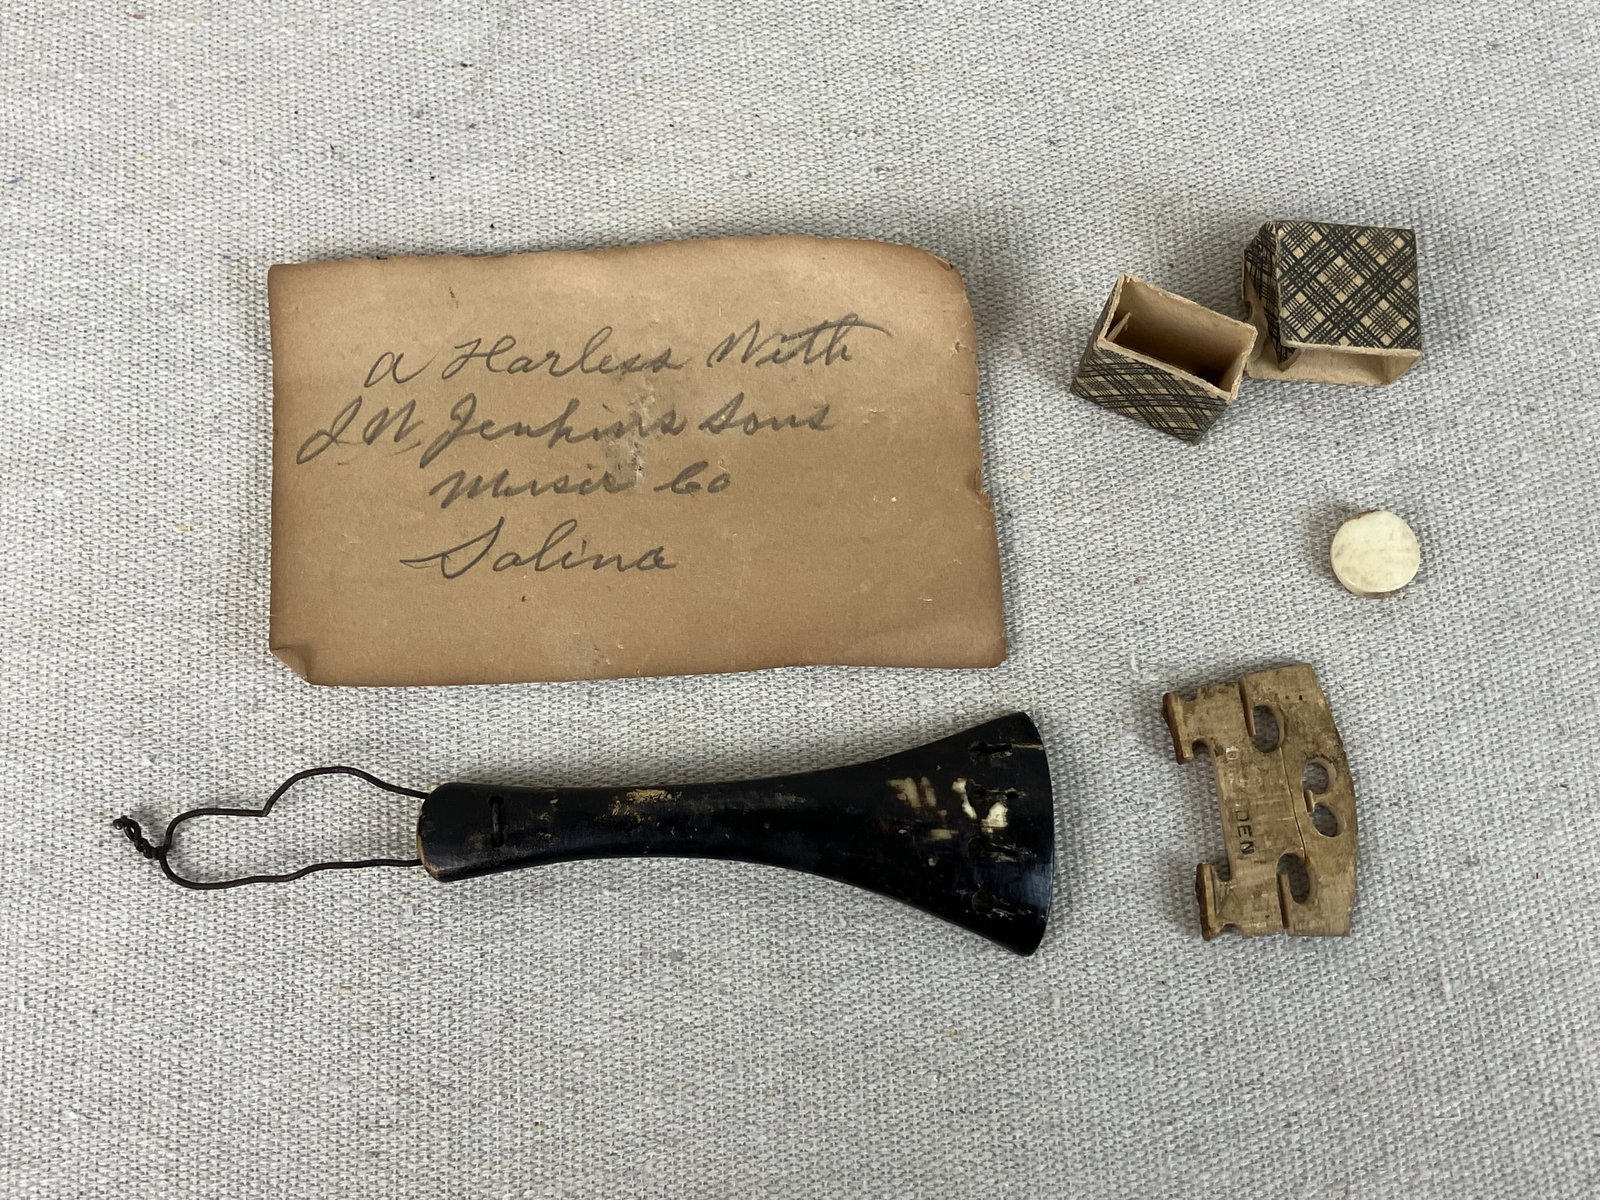 A Harless With
J W Jenkins Sons
Music Co
Salina
DEN